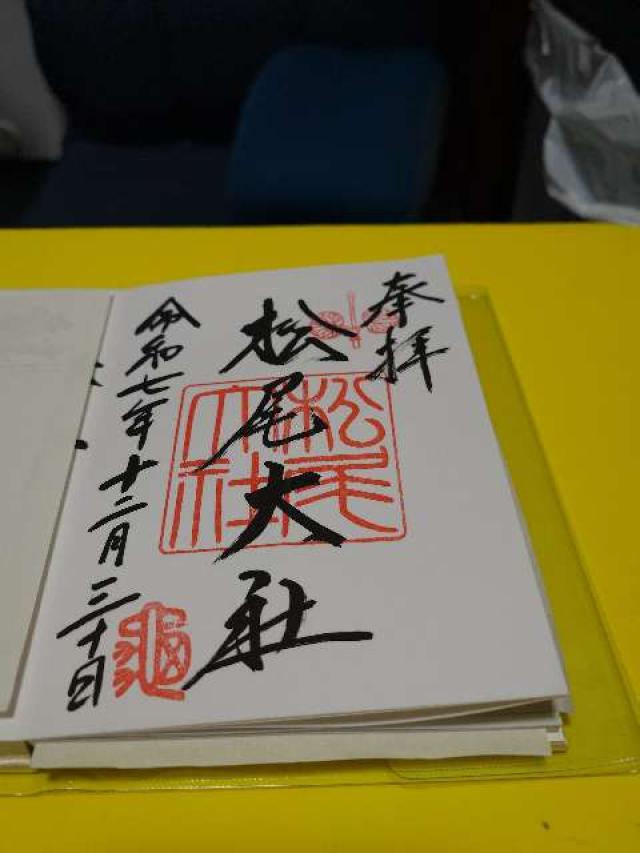 奉拝
松尾大社
松尾大社
令和七年十二月三十日